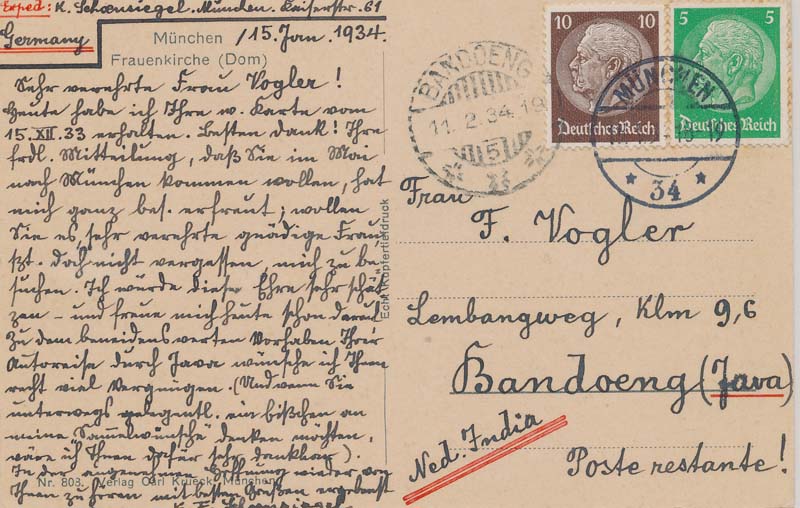 Exped: K. Schoensiegel. München. Kaiserstr. 61
Germany
München
Frauenkirche (Dom)
15. Jan. 1934.
Sehr verehrte Frau Vogler!
Heute habe ich Ihre w. Karte vom
15. XII. 33 erhalten. Besten Dank! Ihre
frdl. Mitteilung, daß Sie im Mai
nach München kommen wollen, hat
mich ganz bes. erfreut; wollen
Sie es, sehr verehrte gnädige Frau,
doch nicht vergessen, mich zu be-
suchen. Ich würde diese Ehre sehr schät-
zen - und freue mich heute schon darauf.
Zu dem beneidenswerten Vorhaben Ihrer
Autoreise durch Java wünsche ich Ihnen
recht viel Vergnügen. (Und wenn Sie
unterwegs gelegentl. ein bißchen an
meine "Sammelwünsche" denken möchten,
wäre ich Ihnen dafür sehr dankbar).
In der angenehmen Hoffnung wieder von
Ihnen zu hören mit besten Grüßen ergebenst
Nr. 803. Verlag Carl Krueck, München
Echt Kupfertiefdruck
BANDOENG
11.2.34.18
5
10 10
Deutsches Reich
5 5
Deutsches Reich
MÜNCHEN
* 34 *
Frau
F. Vogler
Lembangweg, Klm 9,6
Bandoeng (Java)
Ned. India
Poste restante!